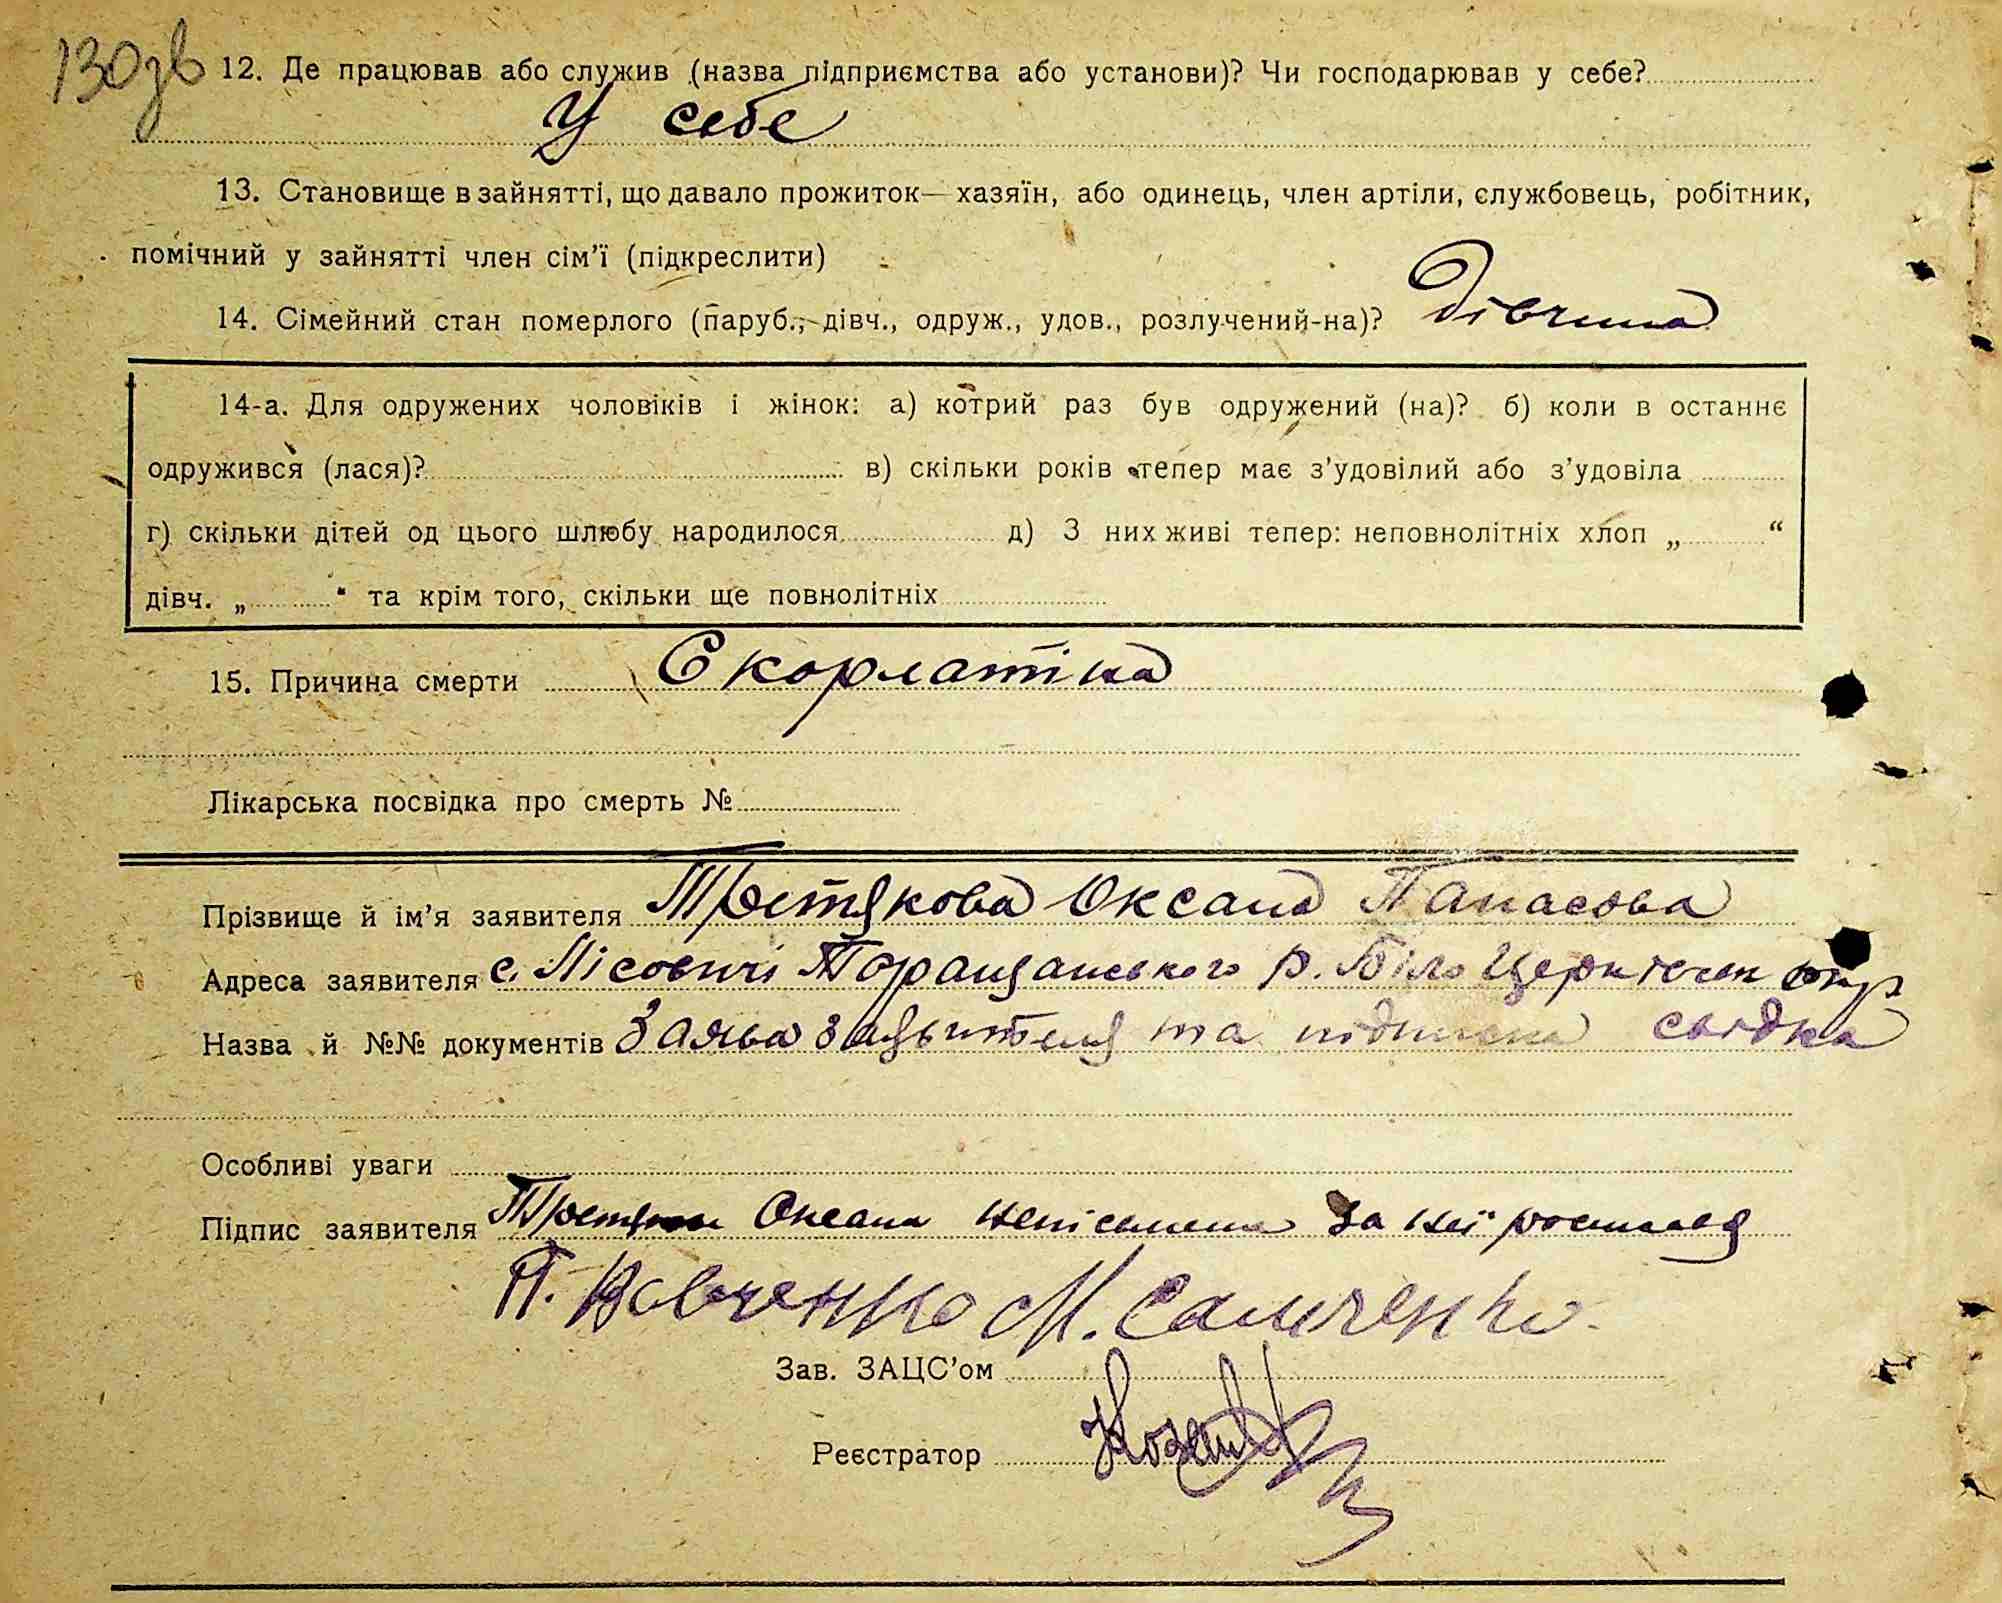 130зв
12. Де працював або служив (назва підприємства або установи)? Чи господарював у себе?
У себе
13. Становище в зайнятті, що давало прожиток— хазяїн, або одинець, член артіли, службовець, робітник,
помічний у зайнятті член сім'ї (підкреслити)
14. Сімейний стан померлого (паруб., дівч., одруж., удов., розлучений-на)? Дівчина
14-а. Для одружених чоловіків і жінок: а) котрий раз був одружений (на)? б) коли в останнє
одружився (лася)? в) скільки років тепер має з'удовілий або з'удовіла
г) скільки дітей од цього шлюбу народилося д) З них живі тепер: неповнолітніх хлоп „ “
дівч. „ “ та крім того, скільки ще повнолітніх
15. Причина смерти Скорлатіна
Лікарська посвідка про смерть №
Прізвище й ім'я заявителя Третякова Оксана Панасова
Адреса заявителя с. Лісовичі Таращанського р. Біло Церківськ окр
Назва й №№ документів Заява заявителя та підписка свідка
Особливі уваги
Підпис заявителя Оксана неписьмена за неї
П. Вовченко М. Самченко
Зав. ЗАЦС'ом
Реєстратор